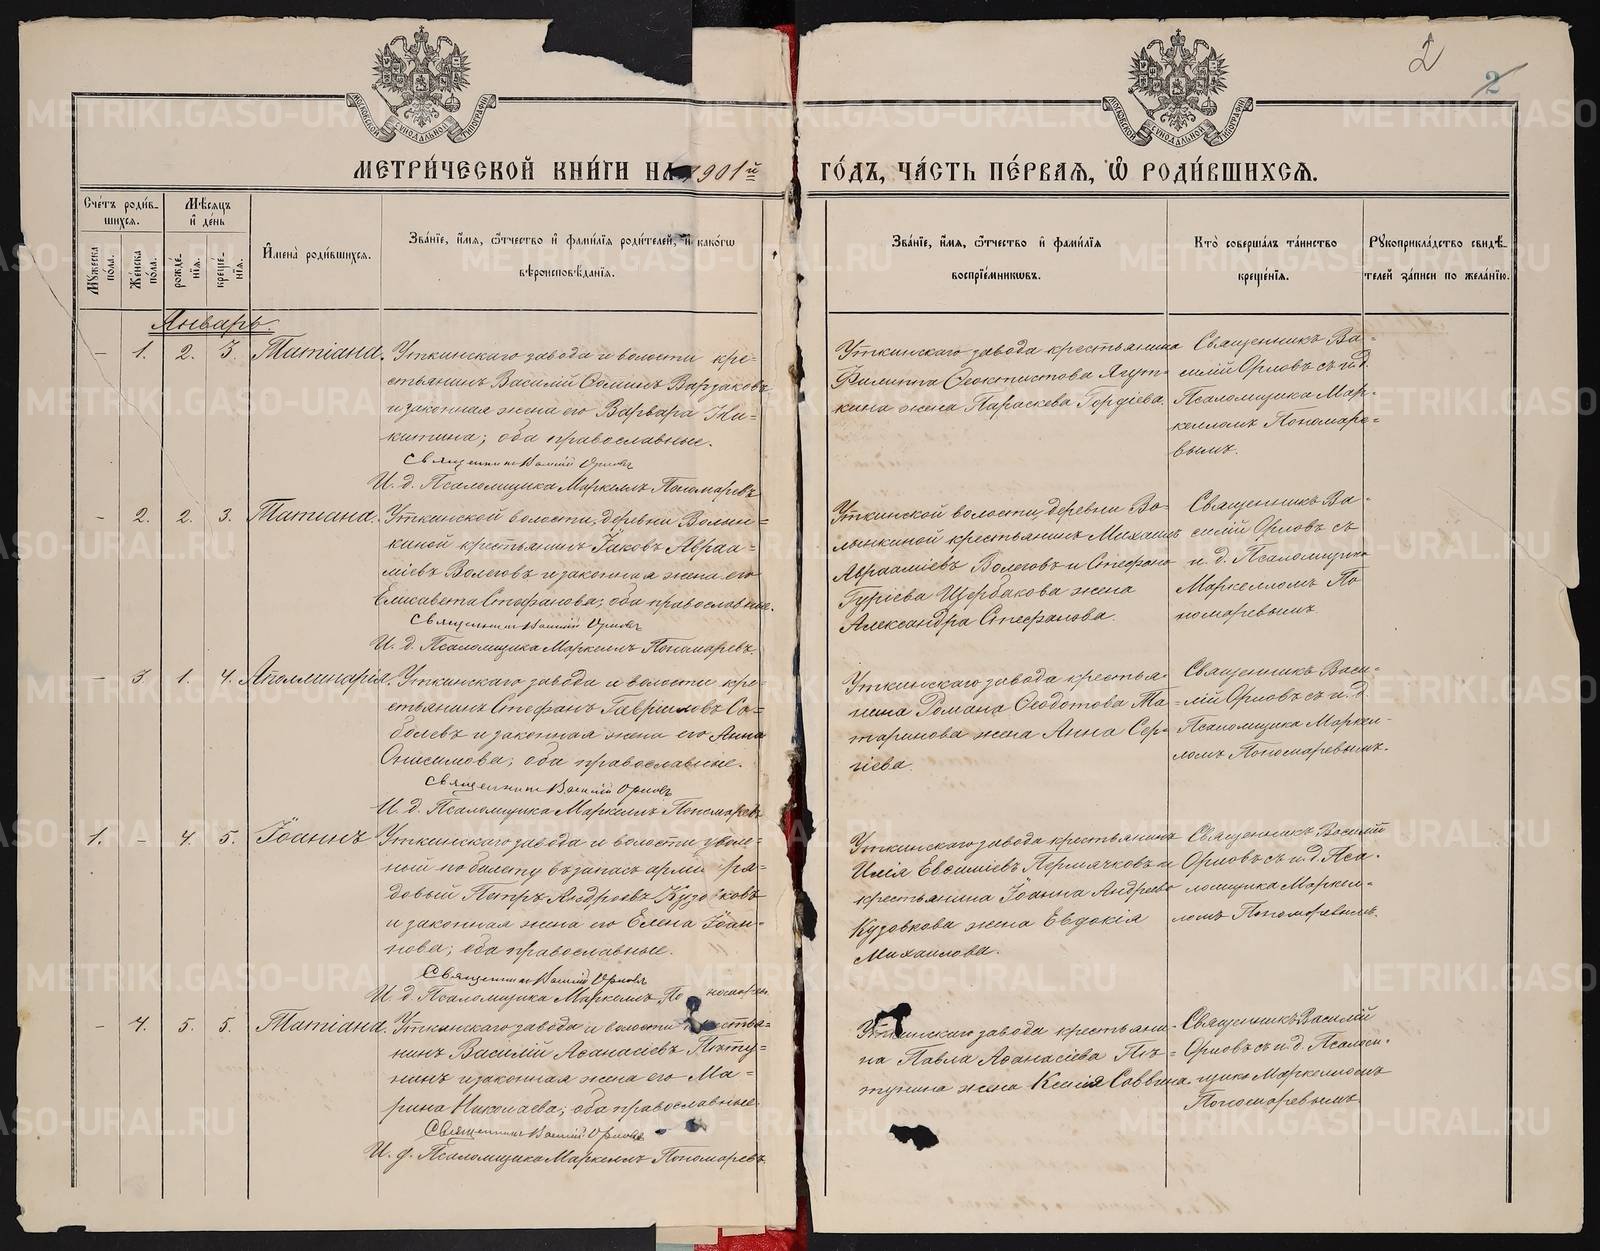 МОСКОВСКОЙ СѴНОДАЛЬНОЙ ТИПОГРАФІИ
МОСКОВСКОЙ СѴНОДАЛЬНОЙ ТИПОГРАФІИ
2
2
МЕТРИ́ЧЕСКОЙ КНИ́ГИ НА 1901й ГО́ДЪ, ЧА́СТЬ ПЕ́РВАѦ, Ѡ҆ РОДИ́ВШИХСѦ.
Сче́тъ роди́вшихся.
Му́жеска по́ла.
Же́нска по́ла.
Мѣ́сяцъ и҆ де́нь
рожде́нїя.
креще́нїя.
И҆мена̀ роди́вшихся.
Зва́нїе, и҆́мя, ѻ҆́тчество и҆ фами́лїя роди́телей, и҆ како́гѡ
вѣроисповѣ́данїя.
Зва́нїе, и҆́мя, ѻ҆́тчество и҆ фами́лїя
воспрїе́мниковъ.
Кто̀ соверша́лъ та́инство
креще́нїя.
Рꙋкоприкла́дство свидѣ́-
телей за́писи по жела́нїю.
Январь.
- 1. 2. 3. Татіана.
Уткинскаго завода и волости кре=
стьянинъ Василій Ѳоминъ Варзаковъ
и законная жена его Варвара Ни-
китина; оба православные.
Священникъ Василій Орловъ
И. д. Псаломщика Маркеллъ Пономаревъ
Уткинскаго завода крестьянина
Филиппа Ѳеоктистова Ягут-
кина жена Параскева Гордіева.
Священникъ Ва-
силій Орловъ съ и. д.
Псаломщика Мар-
келломъ Пономаре-
вымъ.
- 2. 2. 3. Татіана.
Уткинской волости, деревни Волын=
киной крестьянинъ Іаковъ Авраа-
міевъ Волеговъ и законная жена его
Елисавета Стефанова; оба православные.
Священникъ Василій Орловъ
И. д. Псаломщика Маркеллъ Пономаревъ.
Уткинской волости, деревни Во-
лынкиной крестьянинъ Михаилъ
Авраамиевъ Волеговъ и Стефана
Гуріева Щербакова жена
Александра Стефанова.
Священникъ Ва-
силій Орловъ съ
и. д. Псаломщика
Маркелломъ По
номаревымъ.
- 3 1. 4. Аполлинарія.
Уткинскаго завода и волости кре-
стьянинъ Стефанъ Гавриловъ Со-
болевъ и законная жена его Анна
Онисимова; оба православные.
Священникъ Василій Орловъ
И. д. Псаломщика Маркеллъ Пономаревъ
Уткинскаго завода крестья-
нина Романа Ѳеодотова Та-
таринова жена Анна Сер-
гіева.
Священникъ Васи-
лій Орловъ съ и. д.
Псаломщика Маркел-
ломъ Пономаревымъ.
1. - 4. 5. Іоаннъ
Уткинскаго завода и волости уволе-
ной по билету въ запасъ арміи ря-
довый Петръ Андреевъ Кузовковъ
и законная жена его Елена Іоан-
нова; оба православные.
Священникъ Василій Орловъ
И. д. Псаломщика Маркеллъ Пономаревъ
Уткинскаго завода крестьянинъ
Илія Евѳиміевъ Пермячковъ и
крестьянина Іоанна Андреева
Кузовкова жена Евдокія
Михаилова.
Священникъ Василій
Орловъ съ и. д. Пса-
ломщика Маркел-
ломъ Пономаревымъ.
- 4. 5. 5. Татіана.
Уткинскаго завода и волости крестья=
нинъ Василій Аѳанасіевъ Пѣту=
нинъ и законная жена его Ма-
рина Николаева; оба православные.
Священникъ Василій Орловъ
И. д. Псаломщика Маркеллъ Пономаревъ.
Уткинскаго завода крестьяни-
на Павла Аѳанасіева Пѣ-
тунина жена Ксенія Саввина.
Священникъ Василій
Орловъ съ и. д. Псалом-
щика Маркелломъ
Пономаревымъ.
METRIKI.GASO-URAL.RU